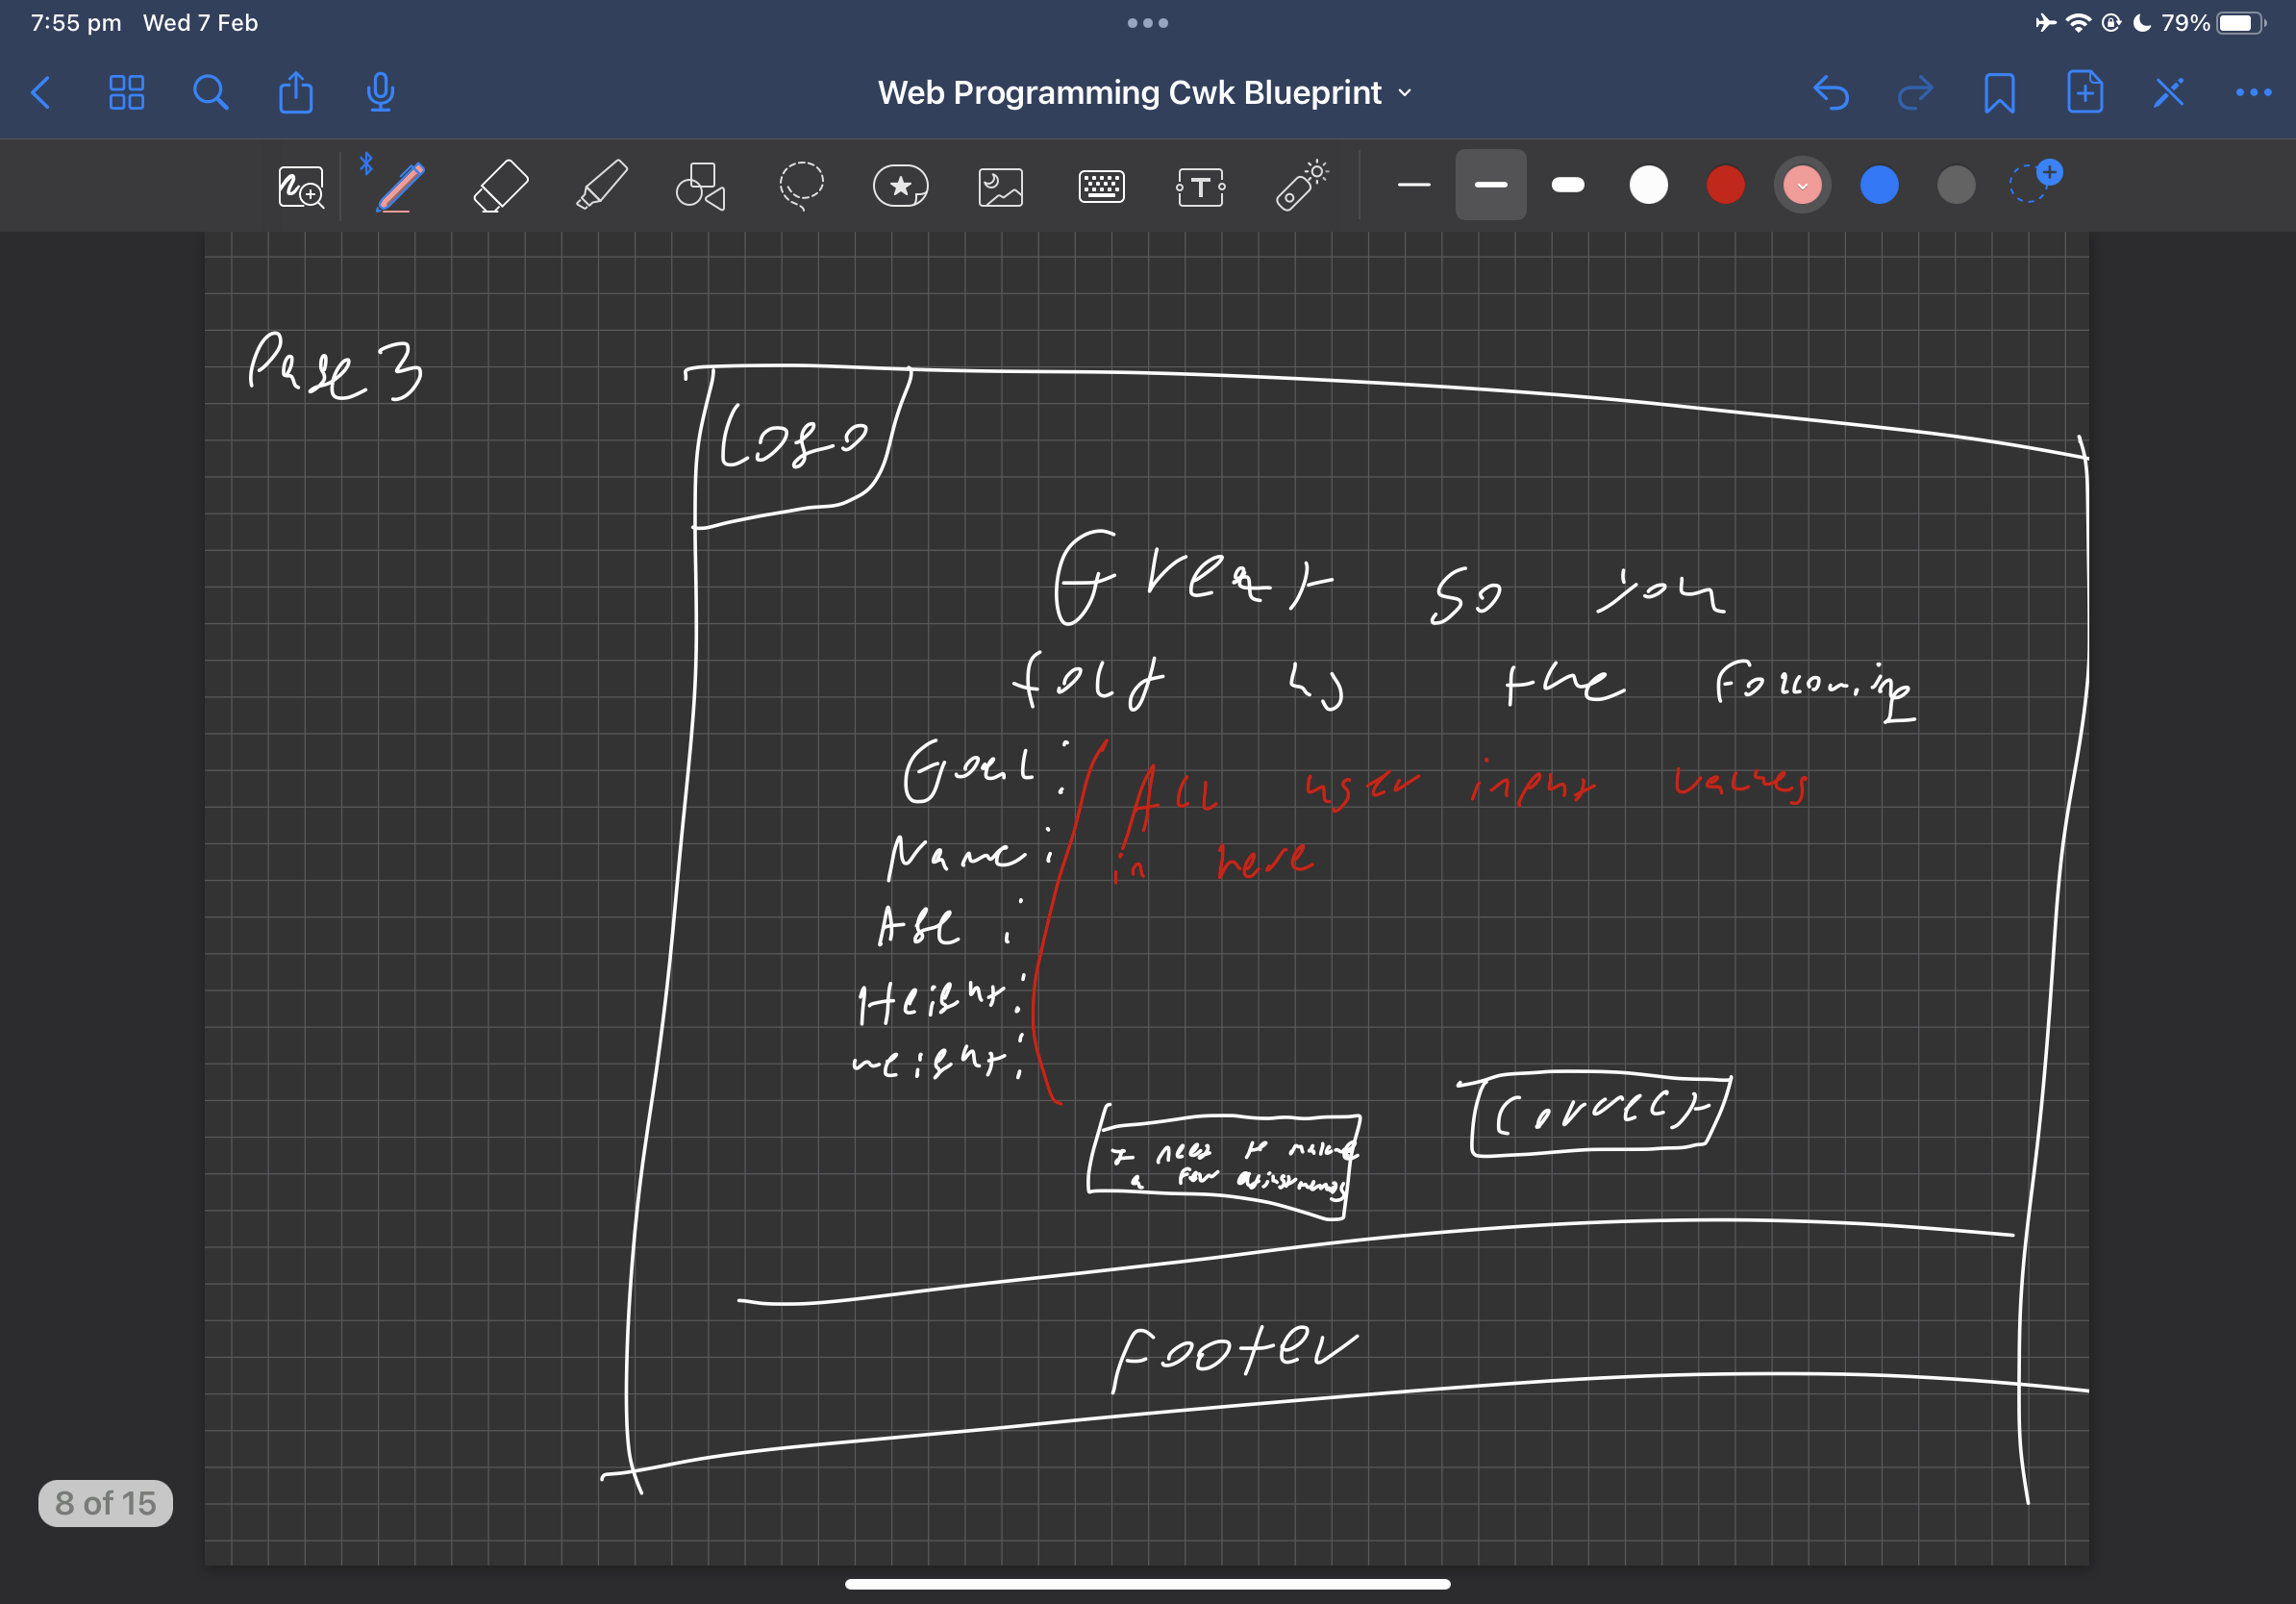 7:55 pm Wed 7 Feb
79%
Web Programming Cwk Blueprint
T
Page 3
Logo
Great so you
told us the following
Goal:
Name:
Age:
Height:
weight:
All user input values
in here
I need to make
a few adjustments
Correct
Footer
8 of 15